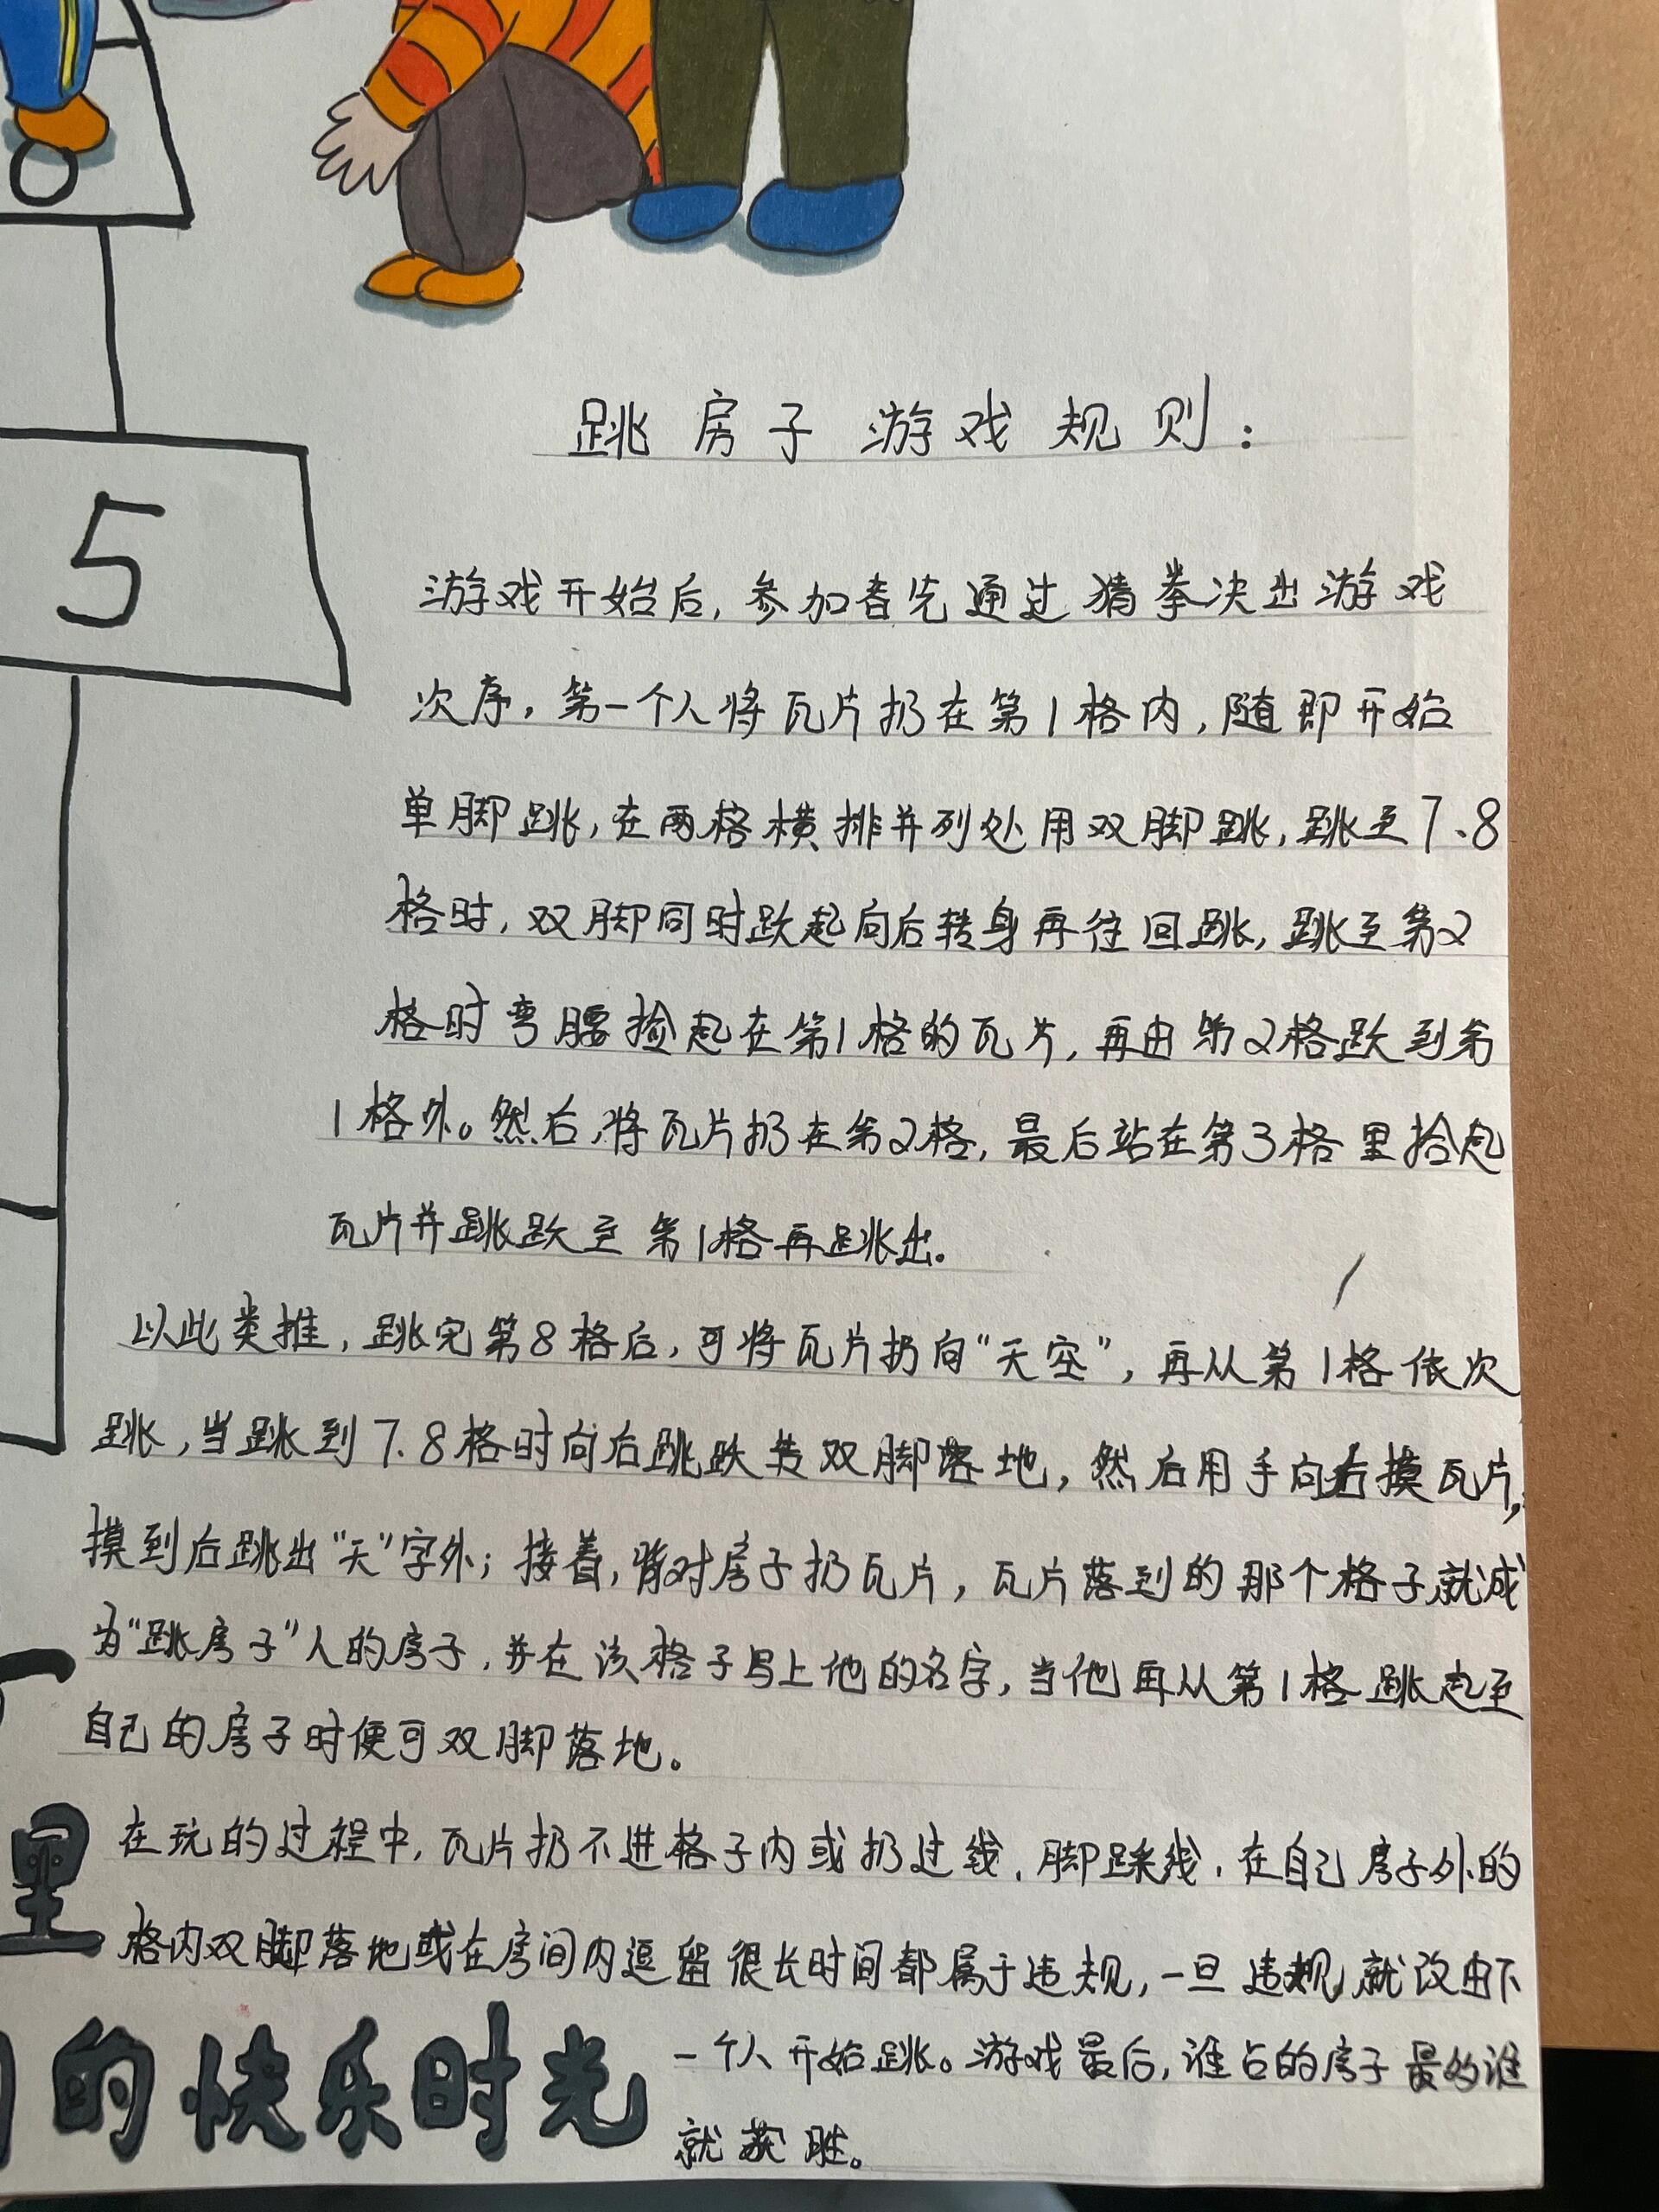 5
跳房子游戏规则：
游戏开始后，参加者先通过猜拳决出游戏
次序，第一个人将瓦片扔在第1格内，随即开始
单脚跳，在两格横排并列处用双脚跳，跳至7、8
格时，双脚同时跃起向后转身再往回跳，跳至第2
格时弯腰捡起在第1格的瓦片，再由第2格跃到第
1格外。然后，将瓦片扔在第2格，最后站在第3格里拾起
瓦片并跳跃至第1格再跳出。
以此类推，跳完第8格后，可将瓦片扔向“天空”，再从第1格依次
跳，当跳到7.8格时向后跳跃转双脚落地，然后用手向右摸瓦片，
摸到后跳出“天”字外；接着，背对房子扔瓦片，瓦片落到的那个格子就成
为“跳房子”人的房子，并在该格子写上他的名字，当他再从第1格跳起至
自己的房子时便可双脚落地。
在玩的过程中，瓦片扔不进格子内或扔过线、脚踩线、在自己房子外的
格内双脚落地或在房间内逗留很长时间都属于违规，一旦违规，就改由下
一个人开始跳。游戏最后，谁占的房子最多谁
就获胜。
里
的快乐时光